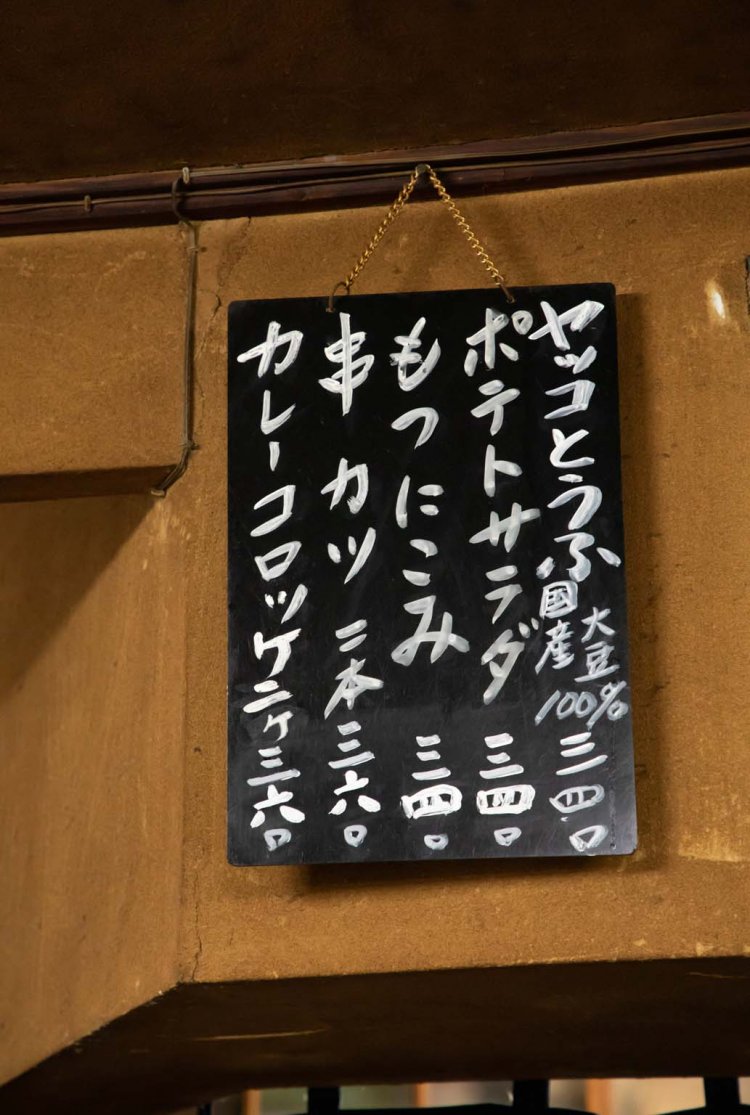 ヤッコとうふ 国産大豆100% 三四〇
ポテトサラダ 三四〇
もつにこみ 三四〇
串カツ 二本 三六〇
カレーコロッケ 二ヶ 三六〇